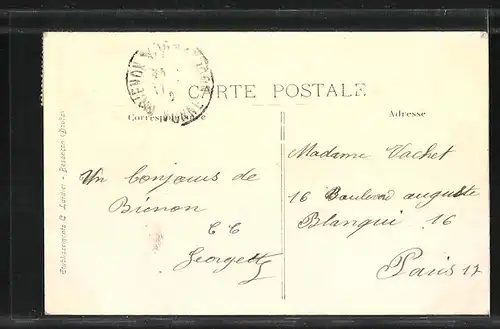 CARTE POSTALE
Correspondance
Adresse
Un bonjour de
Georgette
Madame Vachet
16 Boulevard auguste
Blanqui 16
Paris 13
Etablissements C. Lardier - Besançon (Doubs)